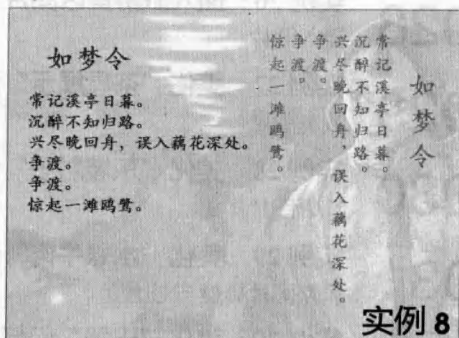 如梦令
常记溪亭日暮。
沉醉不知归路。
兴尽晚回舟，误入藕花深处。
争渡。
争渡。
惊起一滩鸥鹭。
如梦令
常记溪亭日暮。
沉醉不知归路。
兴尽晚回舟，误入藕花深处。
争渡。
争渡。
惊起一滩鸥鹭。
实例 8